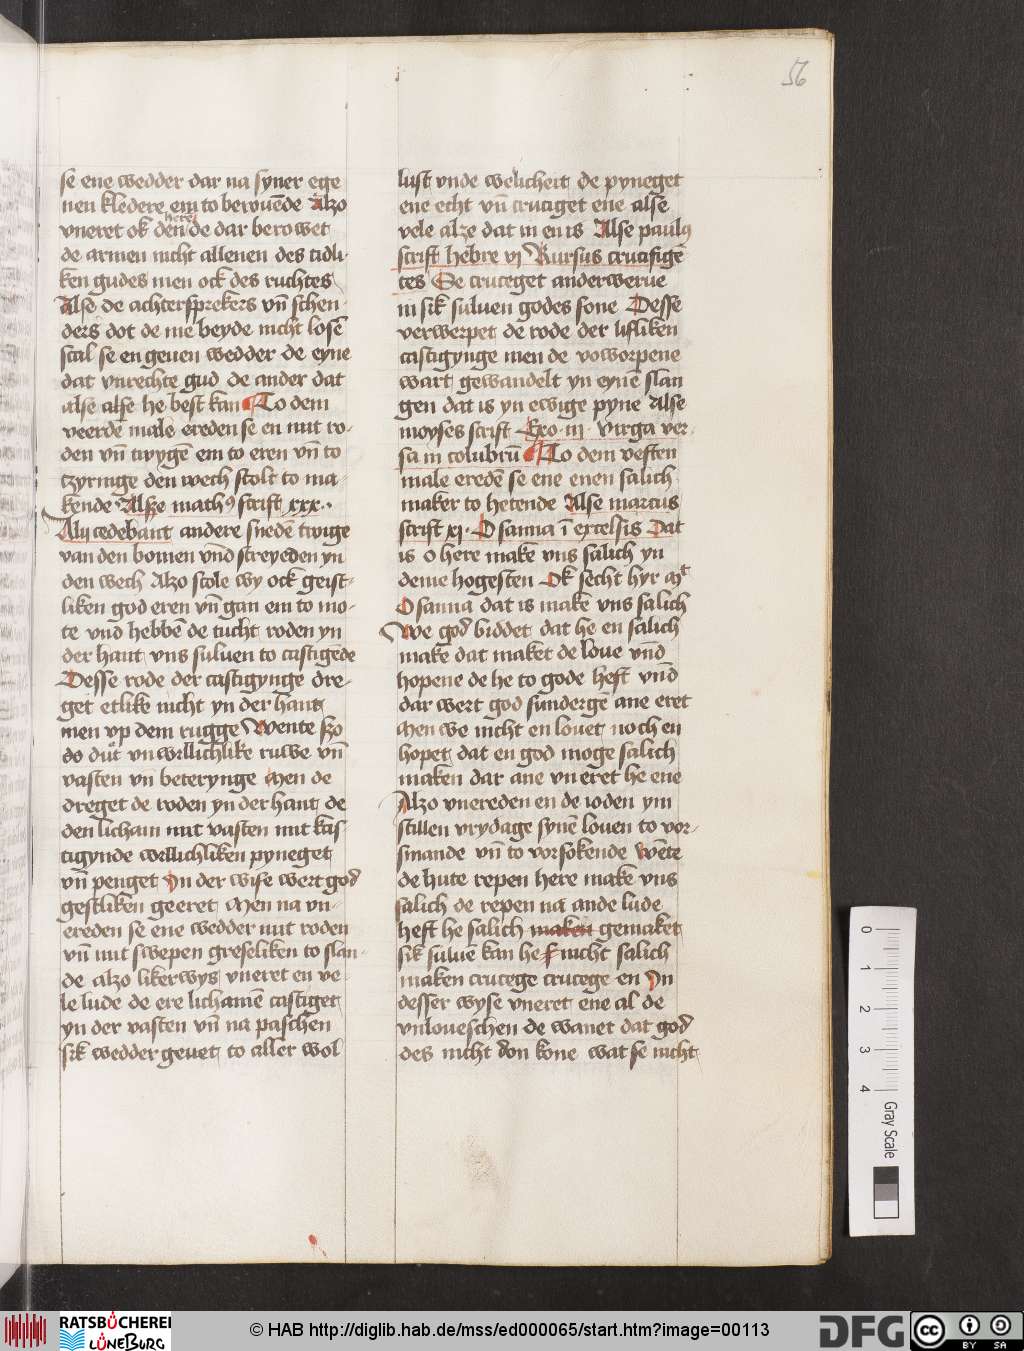 56
se ene wedder dar na syner ege
nen kledere em to berouēde Alzo
here
vneret ok den de dar berowet
de armen nicht allenen des tidli
ken gudes men ock des ruchtes
Alse de achtersprekers vn̄ schen
ders dot de me beyde nicht losē
scal se en geuen wedder de eyne
dat vnrechte gud de ander dat
alse alse he best kan To dem
veerde male ereden se en mit ro-
den vn̄ twygē em to eren vn̄ to
tzyringe den wech stolt to ma
kende Alse math⁹ scrift xxx
Alij cedebant andere snedē twige
van den bomen vnd streyeden yn
den wech Alzo scole wy ock geist-
liken god eren vn̄ gan em to mo-
te vnd hebbē de tucht roden yn
der hant vns suluen to castigēde
Desse rode der castigynge dre-
get etlike nicht yn der hant
men vp dem rugge Wente szo
do dut vnwillichlike ruwe vn̄
vasten vn beterynge Men de
dreget de roden yn der hant de
den licham mit vasten mit kas
tigynde willichliken pyneget
vn̄ penget Jn der wise wert god
gestliken geeret Men na vn-
ereden se ene wedder mit roden
vn̄ mit swepen greseliken to slan-
de alzo likerwys vneret en ve-
le lude de ere lichamē castiget
yn der vasten vn̄ na paschen
sik wedder geuet to aller wol
lust vnde welicheit de pyneget
ene echt vn̄ cruciget ene alse
vele alze dat in en is Alse paul⁹
scrift hebre vj Rursus crucifigē
tes Se cruceget anderwerue
in sik suluen godes sone Desse
verwerpet de rode der lifliken
castigynge men de voworpene
wart gewandelt yn eynē slan
gen dat is yn ewige pyne Alse
moyses scrift Exo iij Virga ver-
sa in colubrū To dem veften
male eredē se ene enen salich
maker to hetende Alse marcus
scrift xj Osanna ī excelsis Dat
is o here make vns salich yn
deme hogesten Ok secht hyr
Osanna dat is make vns salich
We god biddet dat he en salich
make dat maket de loue vn̄d
hopene de he to gode heft vn̄d
dar wert god sundergē ane eret
Men we nicht en louet noch en
hopet dat en god moge salich
maken dar ane vneret he ene
Alzo vnereden en de ioden ym
stillen vrydage synē louen to vor-
smande vn̄ to vorsokende Wēte
de hute repen here make vns
salich de repen na ande lude
heft he salich maken gemaket
sik suluē kan he nicht salich
maken crucege crucege en Jn
desser wyse vneret ene al de
vnloueschen de wanet dat god
des nicht don kone wat se nicht
0
1
2
3
4
Gray Scale
RATSBÜCHEREI
LÜNEBURG
© HAB http://diglib.hab.de/mss/ed000065/start.htm?image=00113
DFG
cc
BY SA